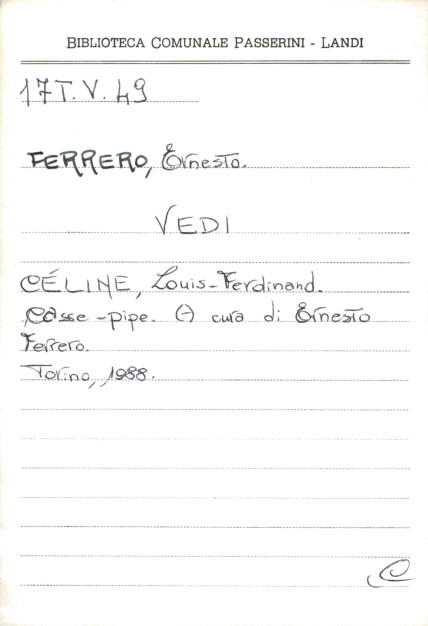 BIBLIOTECA COMUNALE PASSERINI - LANDI
17 T. V. 49
FERRERO, Ernesto.
VEDI
CÉLINE, Louis-Ferdinand.
Casse-pipe. (-) cura di Ernesto
Ferrero.
Torino, 1988.